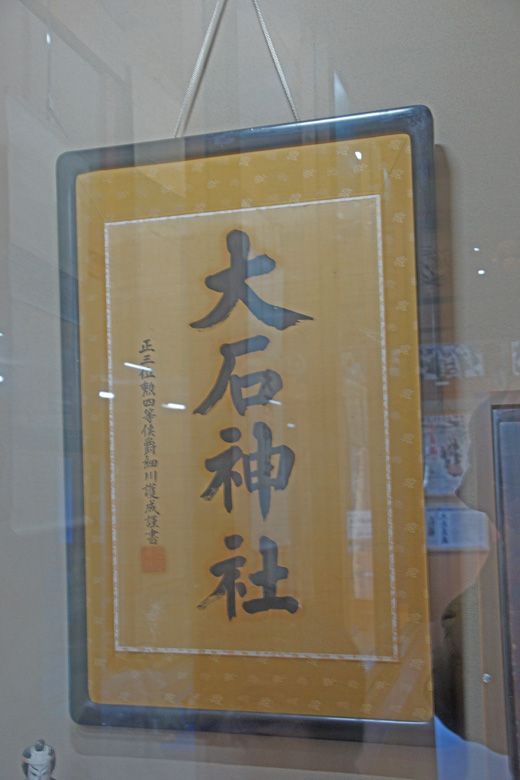 大石神社
正三位勲四等侯爵細川護成謹書